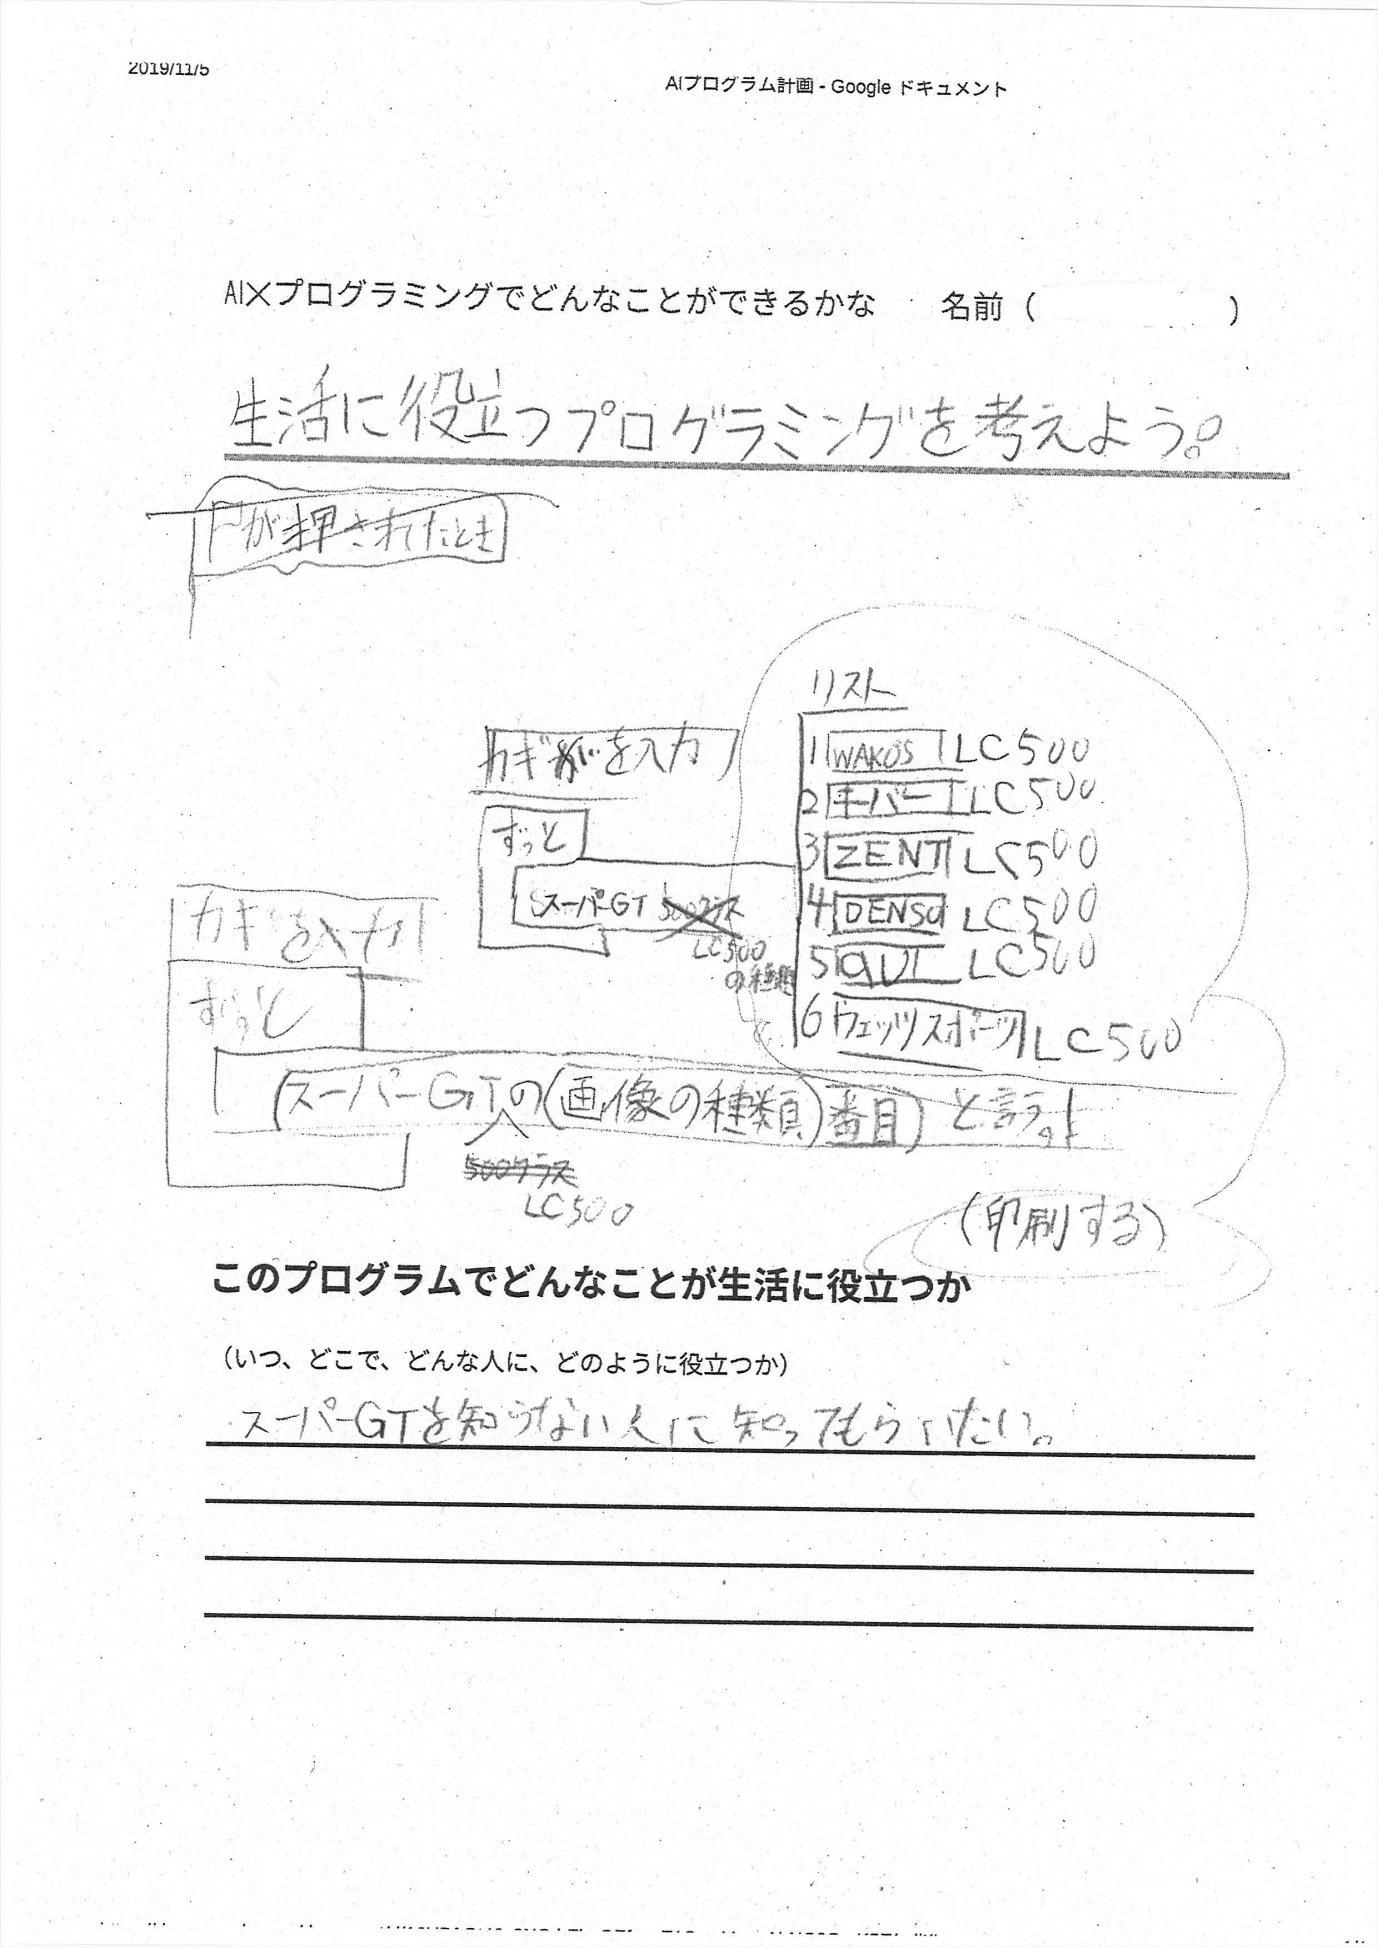 2019/11/5
AIプログラム計画 - Google ドキュメント
AI×プログラミングでどんなことができるかな　名前（　　　　）
生活に役立つプログラミングを考えよう。
が押されたとき
リスト
カギを入力
1 WAKO'S LC500
2 キーパー LC500
ずっと
3 ZENT LC500
スーパーGT 500クラス
4 DENSO LC500
LC500
の種類
5 au LC500
カギを入力
6 ウェッズスポーツ LC500
ずっと
(スーパーGTの(画像の種類)番目) と言う。
500クラス
LC500
(印刷する)
このプログラムでどんなことが生活に役立つか
（いつ、どこで、どんな人に、どのように役立つか）
スーパーGTを知らない人に知ってもらいたい。